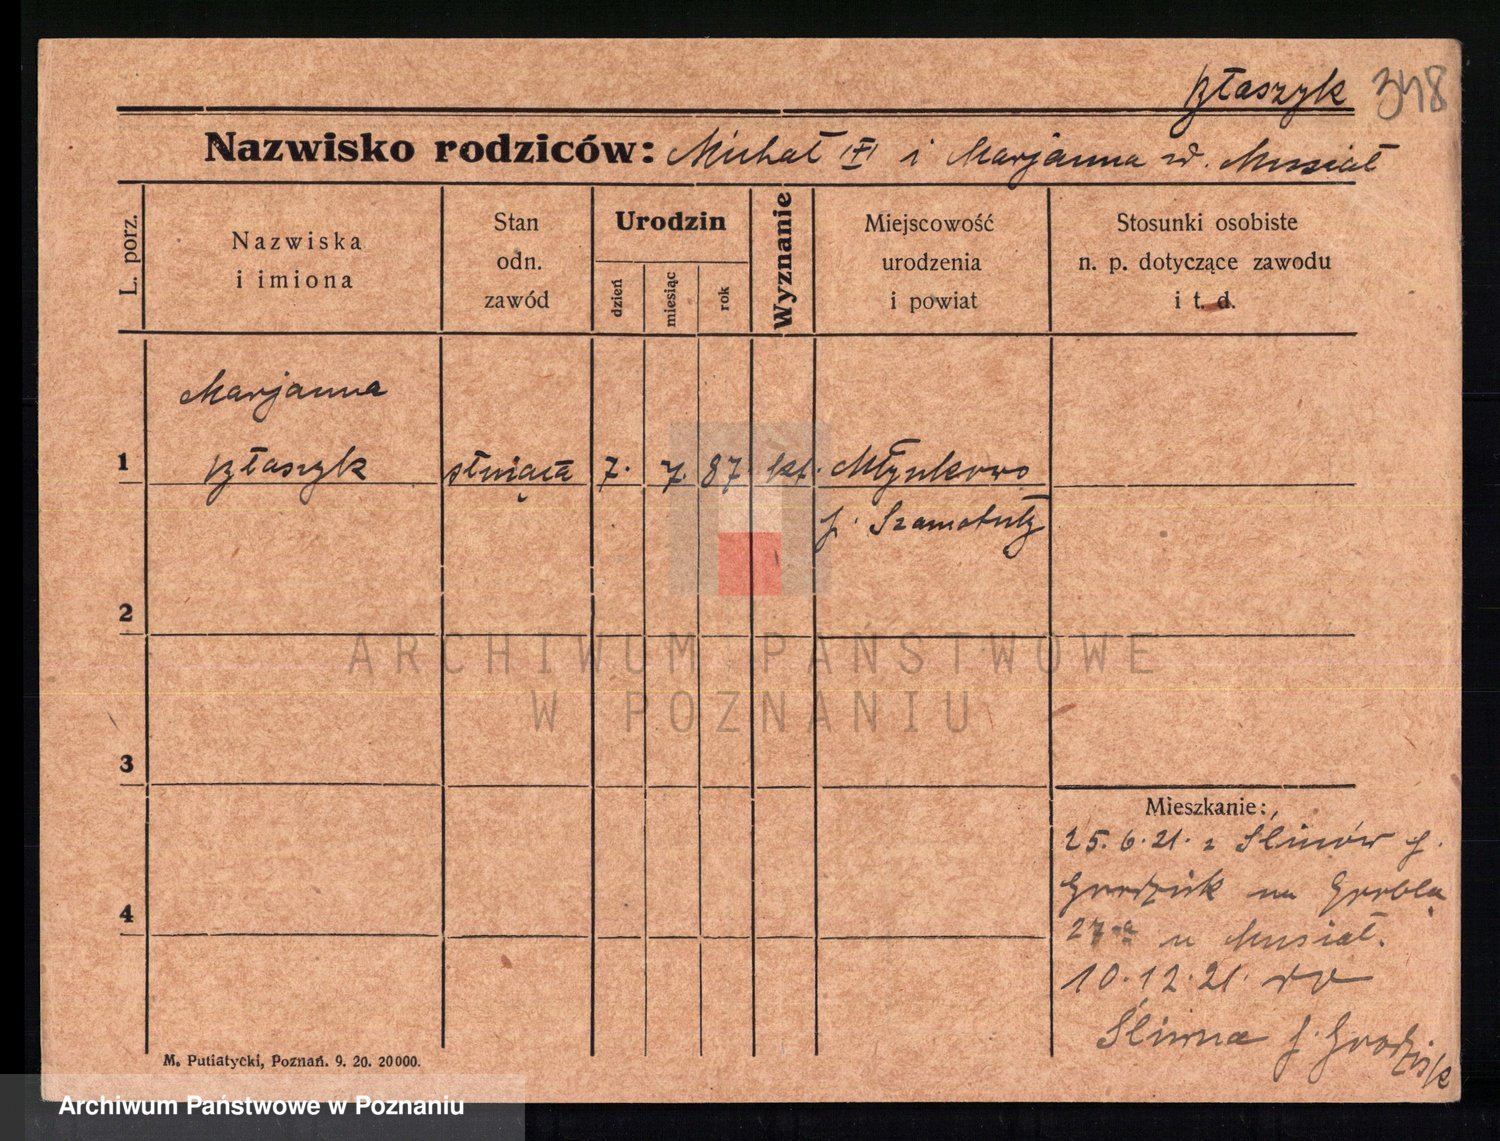 Błaszyk 348
Nazwisko rodziców: Michał i Marjanna Musiał
L. porz.
Nazwiska
i imiona
Stan
odn.
zawód
Urodzin
dzień
miesiąc
rok
Wyznanie
Miejscowość
urodzenia
i powiat
Stosunki osobiste
n. p. dotyczące zawodu
i t. d.
Marjanna
1 Błaszyk służąca 7. 7. 87 kat. Młynkowo
p. Szamotuły
2
ARCHIWUM PAŃSTWOWE
W POZNANIU
3
Mieszkanie:
25.6.21. z p.
Grodzisk na Grobla
4
27 u Musiał.
10.12.21. do
Śliwna p. Grodzisk
M. Putiatycki, Poznań. 9. 20. 20000.
Archiwum Państwowe w Poznaniu